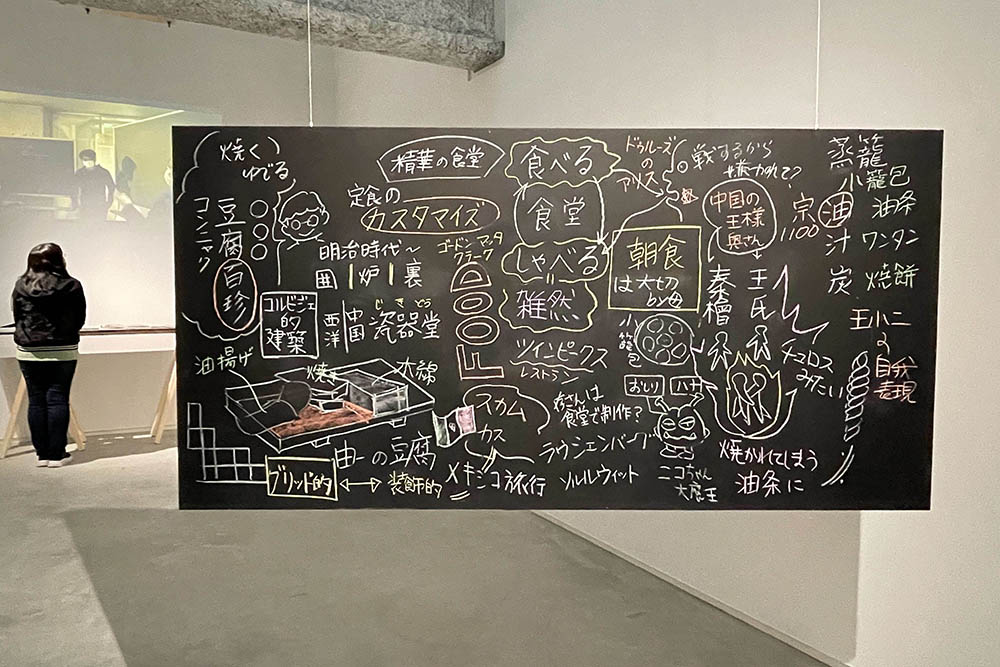 焼く
ゆでる
コンニャク
豆腐
百珍
精華の食堂
定食の
カスタマイズ
明治時代〜
囲|炉|裏
コルビジェ
的
建築
西洋
中国
じきどう
瓷器堂
油揚げ
焼き
木綿
由一の豆腐
グリッド的
装飾的
ゴードン マッタ
クラーク
FOOD
食べる
食堂
しゃべる
雑然
ツインピークス
レストラン
スカム
カス
メキシコ旅行
さんは
食堂で制作?
ラウシェンバーグ
ソルルウィット
ドゥルーズ
の
アリス
朝食
は大切
by母
小籠包
おしり
ハナ
ニコちゃん
大魔王
戦するから
嫌われて?
中国の
王様
奥さん
宗
1100
秦檜
王氏
チュロス
みたい
焼かれてしまう
油条に
蒸籠
小籠包
油 油条
汁 ワンタン
炭 焼餅
王小二
の
自我
表現